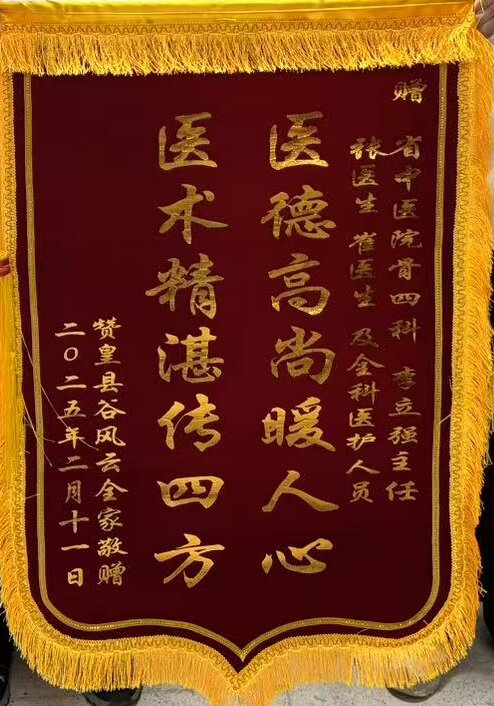 赠
省中医院骨四科 李立强主任
张医生 崔医生 及全科医护人员
医德高尚暖人心
医术精湛传四方
赞皇县谷风云全家敬赠
二〇二五年二月十一日